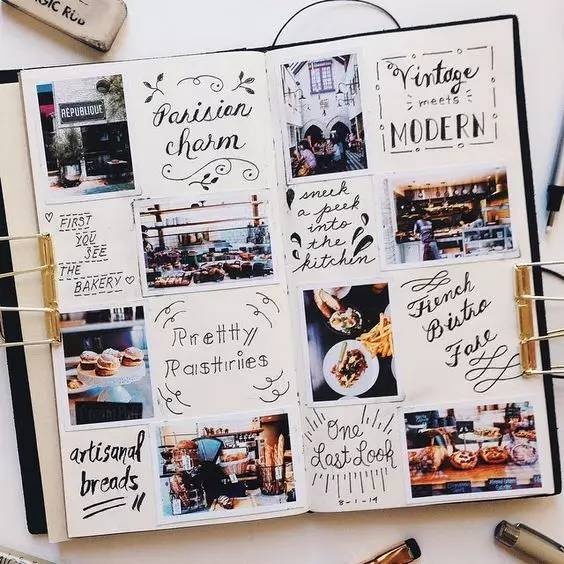 GIC RUB
RÉPUBLIQUE
Parisian
charm
FIRST
YOU
SEE
THE
BAKERY
Pretty
Pastries
artisanal
breads
Vintage
meets
MODERN
sneek
a peek
into
the
kitchen
French
Bistro
Fare
One
Last Look
8-1-19